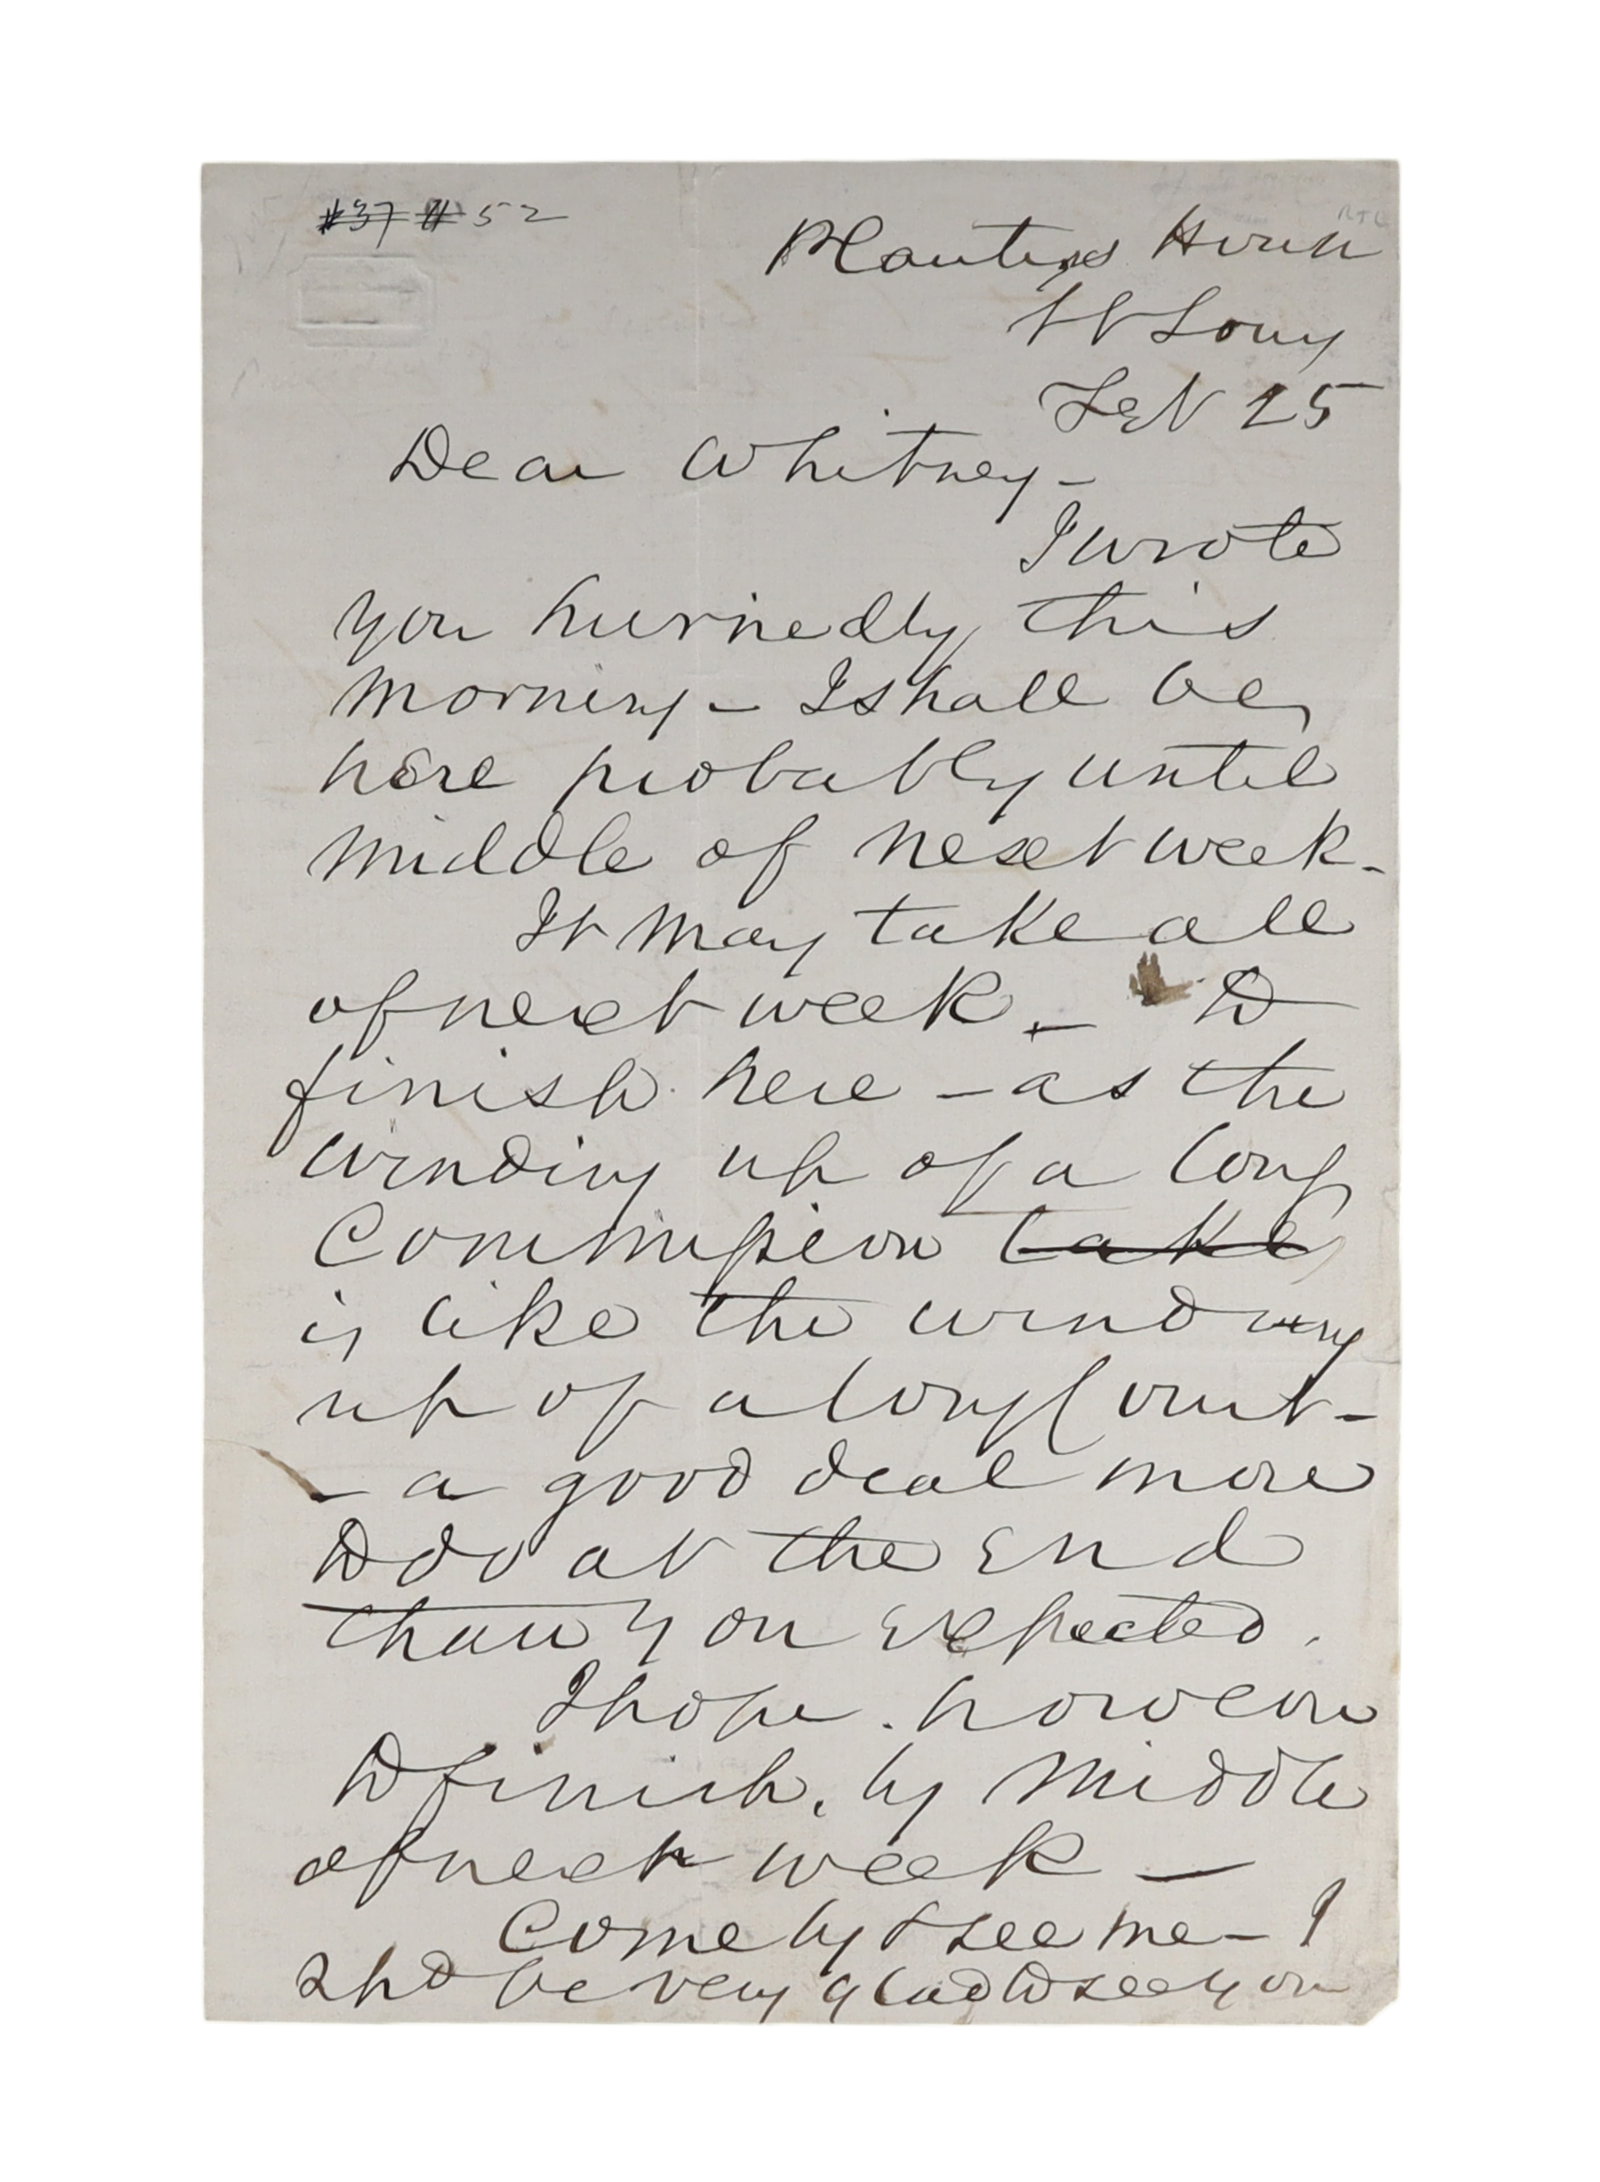 #37 # 52
RTL
Planters House
St Louis
Feb 25
Dear Whitney -
I wrote
you hurriedly this
morning - I shall be
here probably until
middle of next week -
It may take all
of next week - to
finish here - as the
winding up of a long
Commission take
is like the winding
up of a long Court -
- a good deal more
to do at the End
than you expected.
I hope . however
to finish, by middle
of next week -
Come by & see me - I
shd be very glad to see you